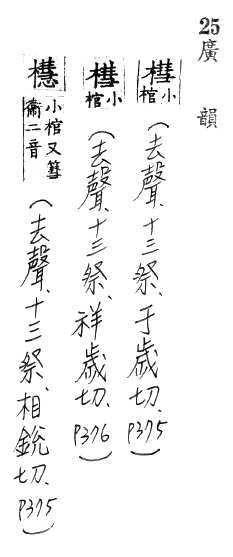 25廣韻
槥小棺(去聲、十三祭、于歲切、P375)
槥小棺(去聲、十三祭、祥歲切、P376)
櫘小棺又篲衞二音(去聲、十三祭、相銳切、P375)